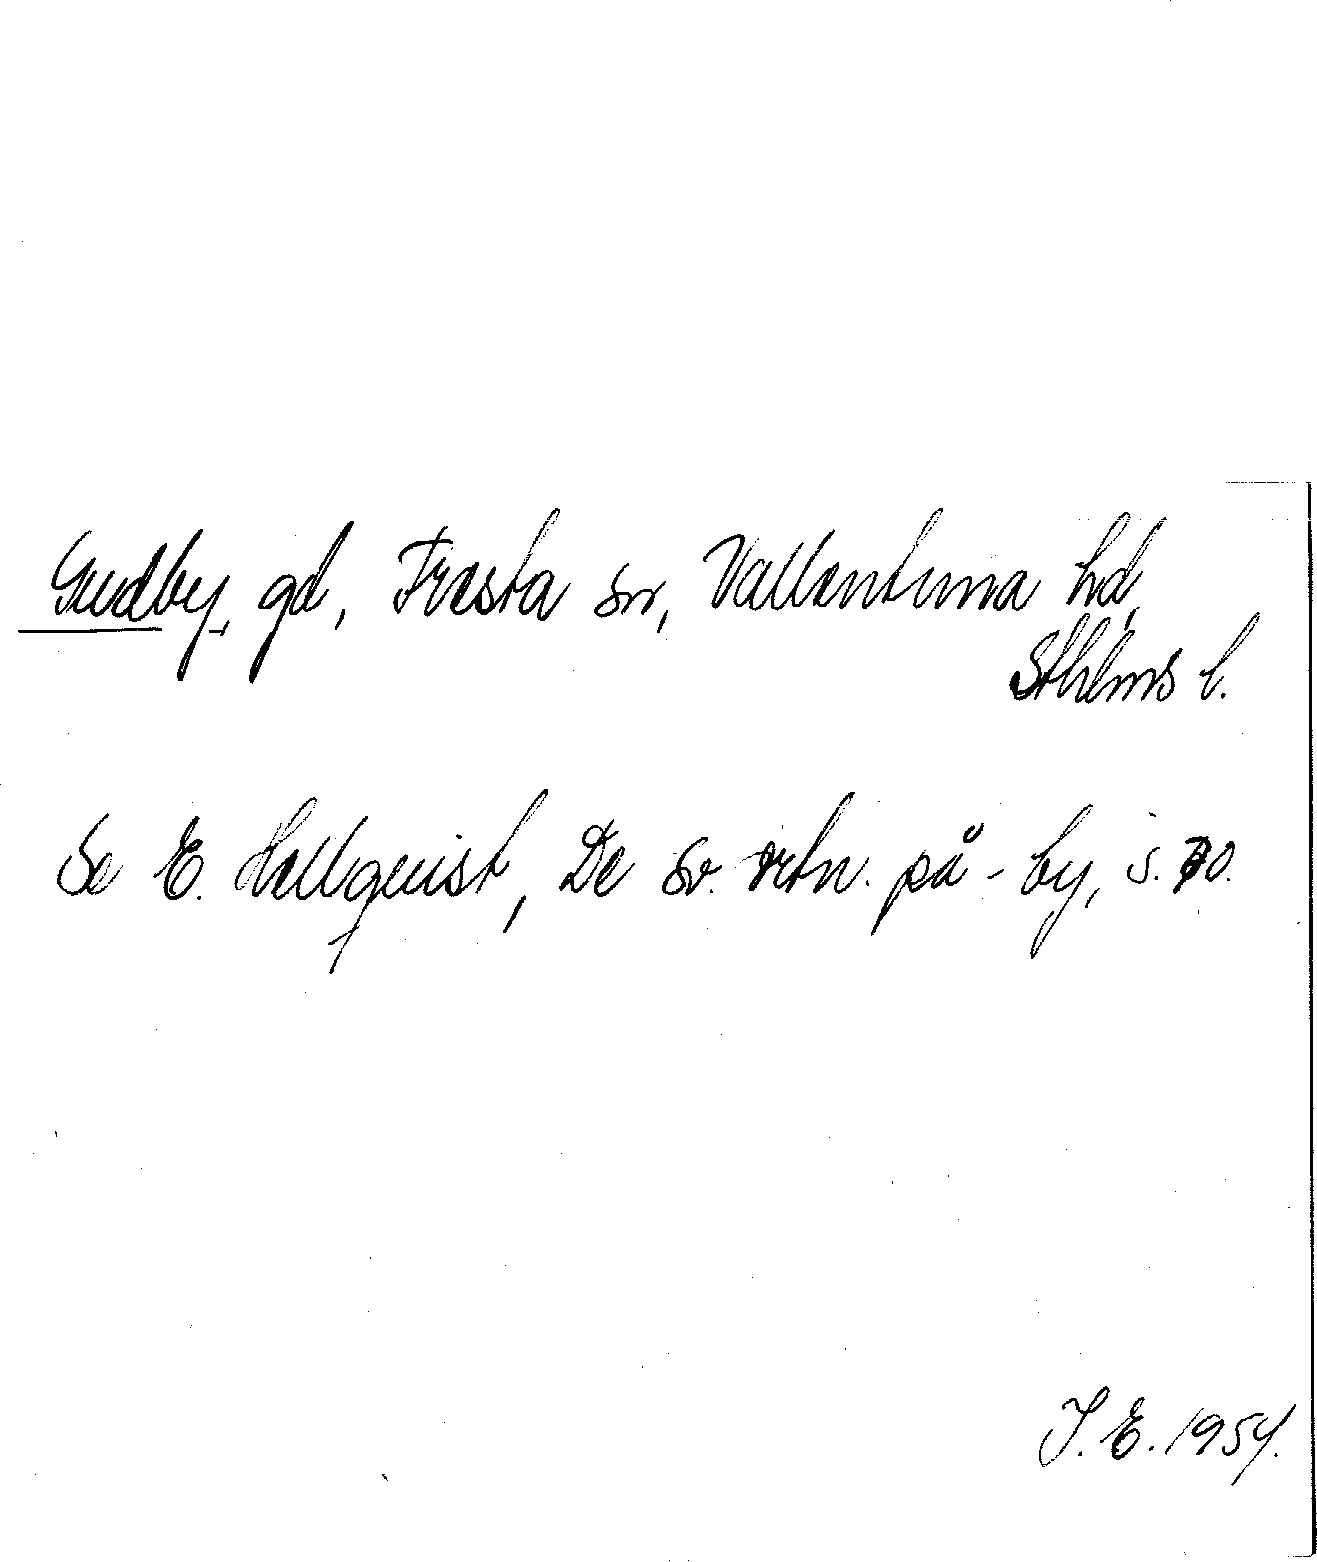 Gudby, gd, Fresta sn, Vallentuna hd,
Sthlms l.
Se E. Hellquist, De sv. ortn. på -by, s. 70.
I. E. 1954.